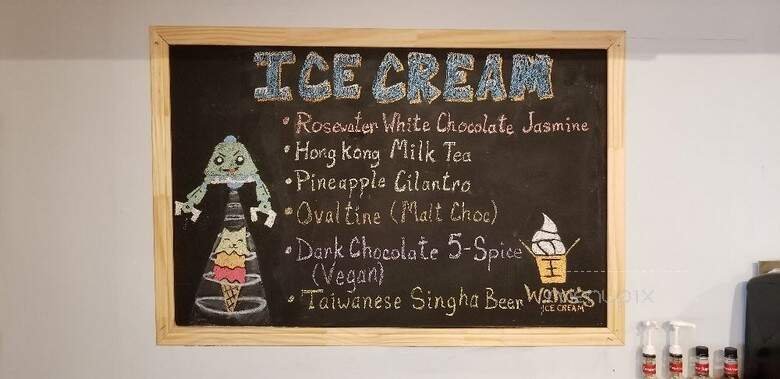 ICE CREAM
• Rosewater White Chocolate Jasmine
• Hong Kong Milk Tea
• Pineapple Cilantro
• Ovaltine (Malt Choc)
• Dark Chocolate 5-Spice
(Vegan)
• Taiwanese Singha Beer
王
Wong's
ICE CREAM